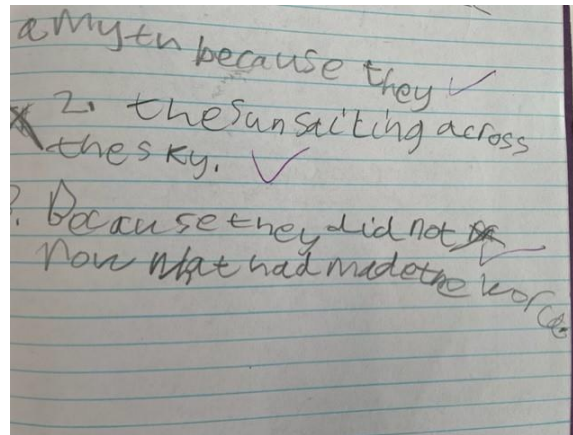 a Mytn because they
2. the Sun saiting across
the sky.
Because they did not
now what had made the